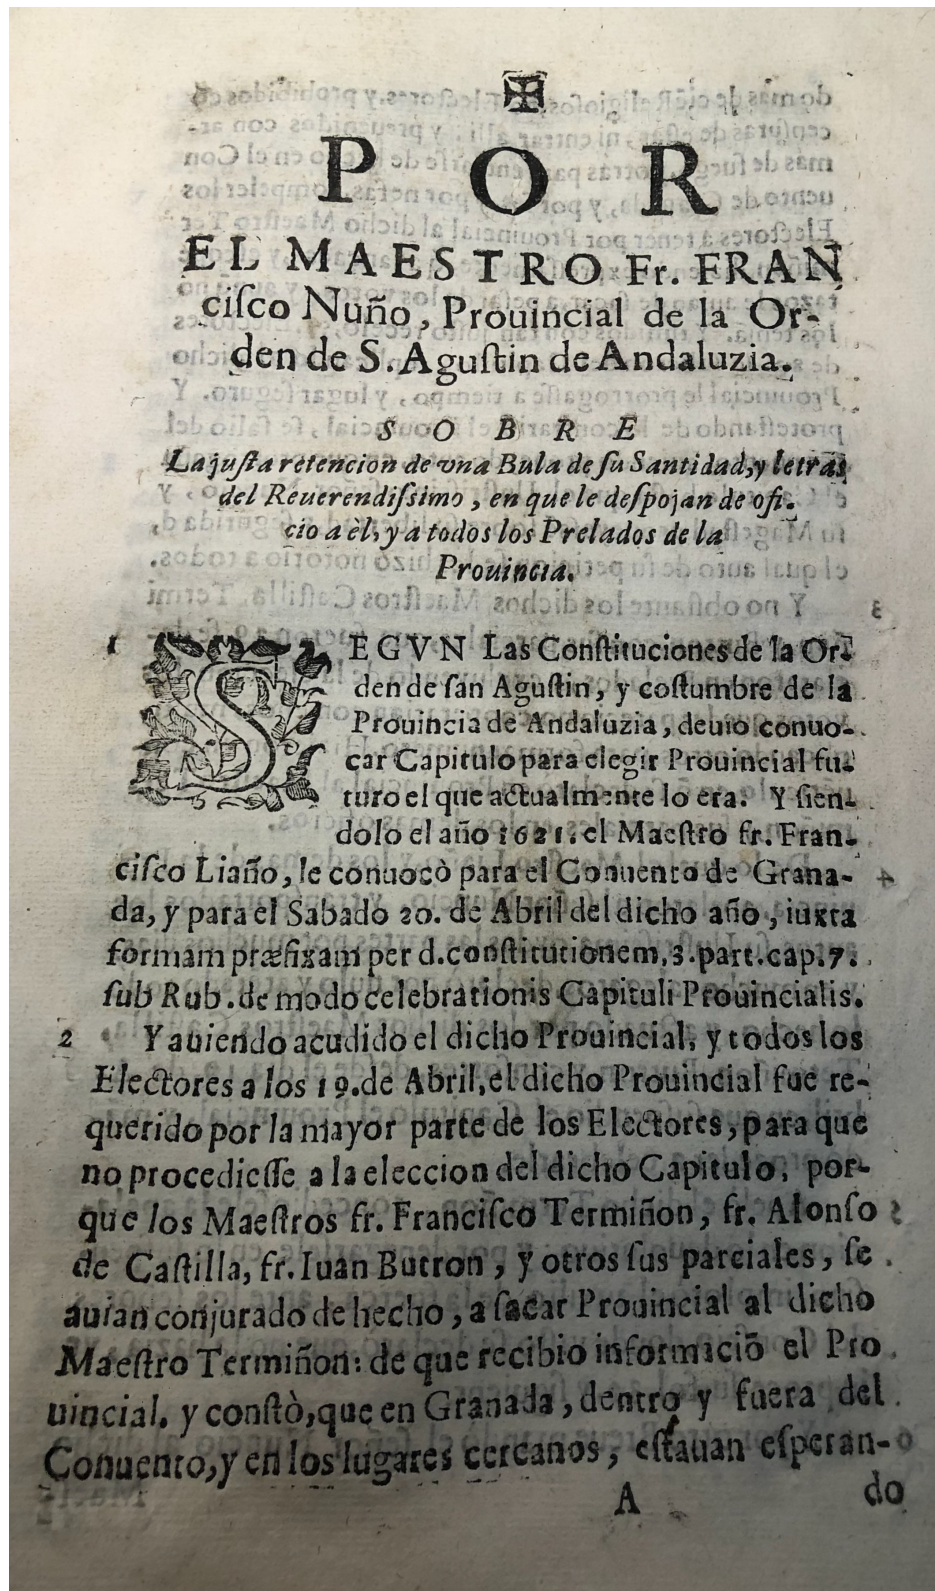 ✠
POR
EL MAESTRO Fr. FRAN
ciſco Nuño, Prouincial de la Or-
den de S. Aguſtin de Andaluzia.
SOBRE
La juſta retencion de vna Bula de ſu Santidad, y letras
del Reuerendiſsimo, en que le deſpojan de ofi-
cio a èl, y a todos los Prelados de la
Prouincia.
1 SEGVN Las Conſtituciones de la Or-
den de ſan Aguſtin, y coſtumbre de la
Prouincia de Andaluzia, deuio conuo-
car Capitulo para elegir Prouincial fu-
turo el que actualmente lo era. Y ſien-
dolo el año 1621. el Maeſtro fr. Fran-
ciſco Liaño, le conuocò para el Conuento de Grana-
da, y para el Sabado 20. de Abril del dicho año, iuxta
formam præfixam per d. conſtitutionem, 3. part. cap. 7.
ſub Rub. de modo celebrationis Capituli Prouincialis.
2 Y auiendo acudido el dicho Prouincial, y todos los
Electores a los 19. de Abril, el dicho Prouincial fue re-
querido por la mayor parte de los Electores, para que
no procedieſſe a la eleccion del dicho Capitulo, por-
que los Maeſtros fr. Franciſco Termiñon, fr. Alonſo
de Caſtilla, fr. Iuan Butron, y otros ſus parciales, ſe
auian conjurado de hecho, a ſacar Prouincial al dicho
Maeſtro Termiñon: de que recibio informaciō el Pro
uincial, y conſtò, que en Granada, dentro y fuera del
Conuento, y en los lugares cercanos, eſtauan eſperan-
A do